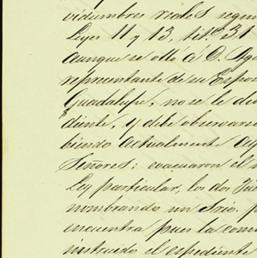 vidumbres reales segun
Leyes 11 y 13, tit.º 31
aunque se oyó á D. Agu
representante de su Espos
Guadalupe, no se le dió
diente, y debe observarse
biendo actualmente
Señores: evacuaron el
Ley particular, los dos Jue
nombrando un Srio. p
encuentra pues la com
instruido el espediente